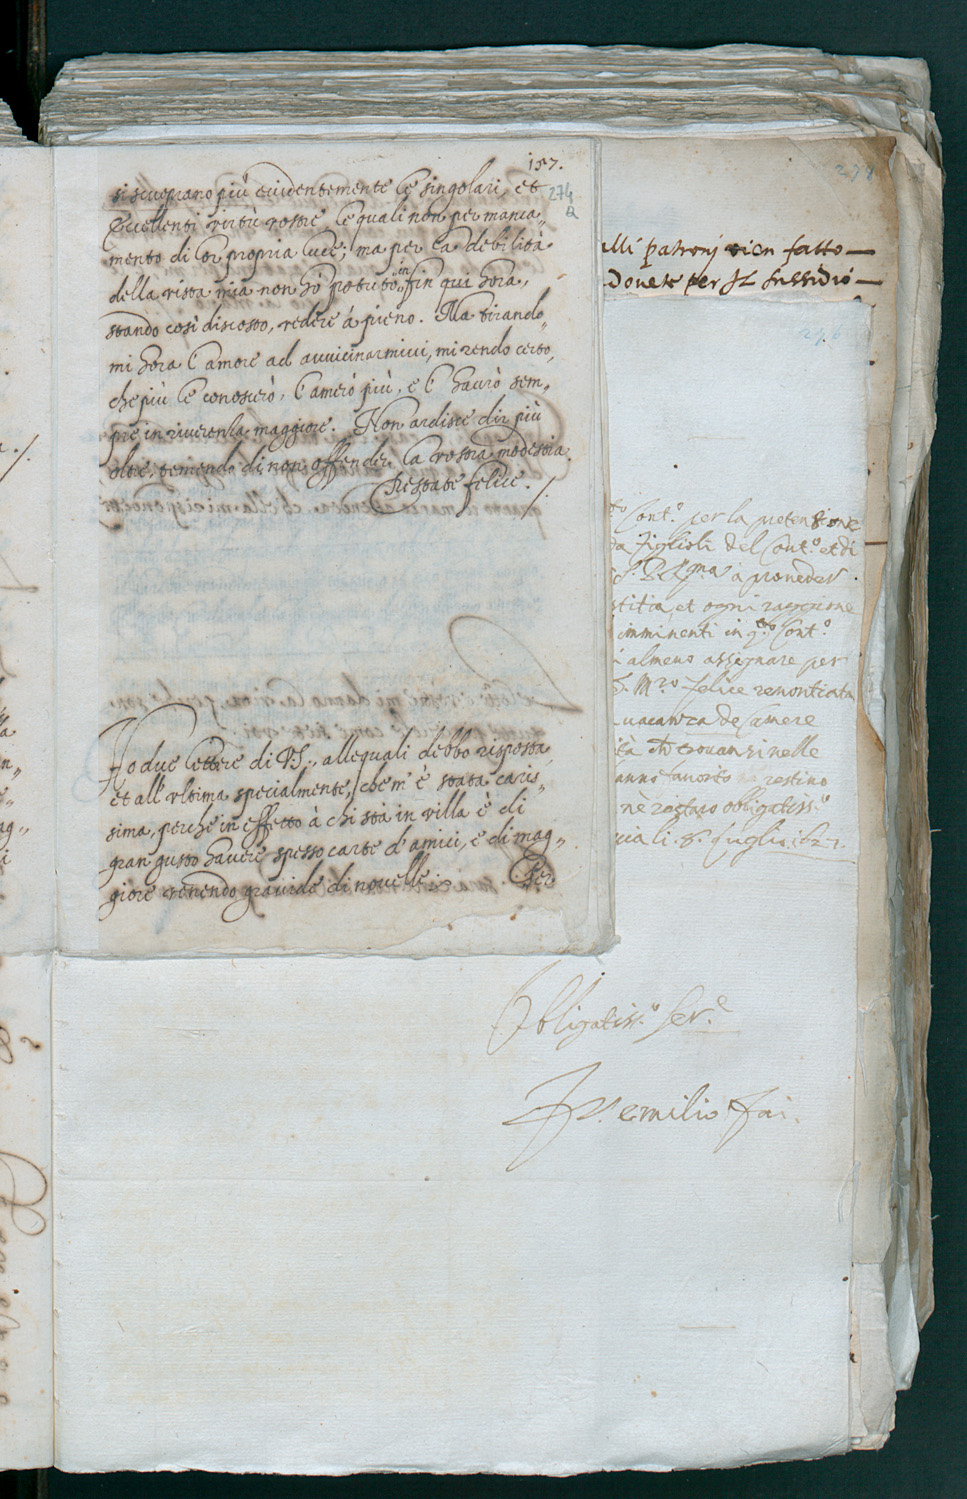 157.
274
2
si scuoprano più evidentemente le singolari, et
Eccellenti virtù vostre le quali non per manca„
mento di lor propria luce; ma per la debilità
della vista mia non hò potuto in fin qui hora,
stando così discosto, vedere à pieno. Ma tirando„
mi hora l'amore ad avvicinarmivi, mi rendo certo,
che più le conoscerò, l'amerò più, e l'havrò sem„
pre in riverenza maggiore. Non ardisco dir più
oltre, temendo di non offender la vostra modestia.
Restate felice. /.
Ho due lettere di V.S., alle quali debbo risposta
et all'ultima specialmente, che m'è stata caris„
sima, perche in effetto à chi stà in villa è di
gran gusto havere spesso carte d'amici, e di mag„
giore venendo gravide di novelle.
Per
278
alli patroni vien fatto
Dovete per Il sussidio
276
Cont.º per la pretensione
figlioli del Cont.º et di
à proveder.
stitia, et ogni raggione
imminenti in q.to Cont.º
almeno assignare per
S. M.ro felice renontiata
vacanza de Camere
trovansi nelle
anno favorito restino
nè restarò obligatiss.º
li. 8. luglio 1627.
Obligatiss.º Ser.e
emilio fai